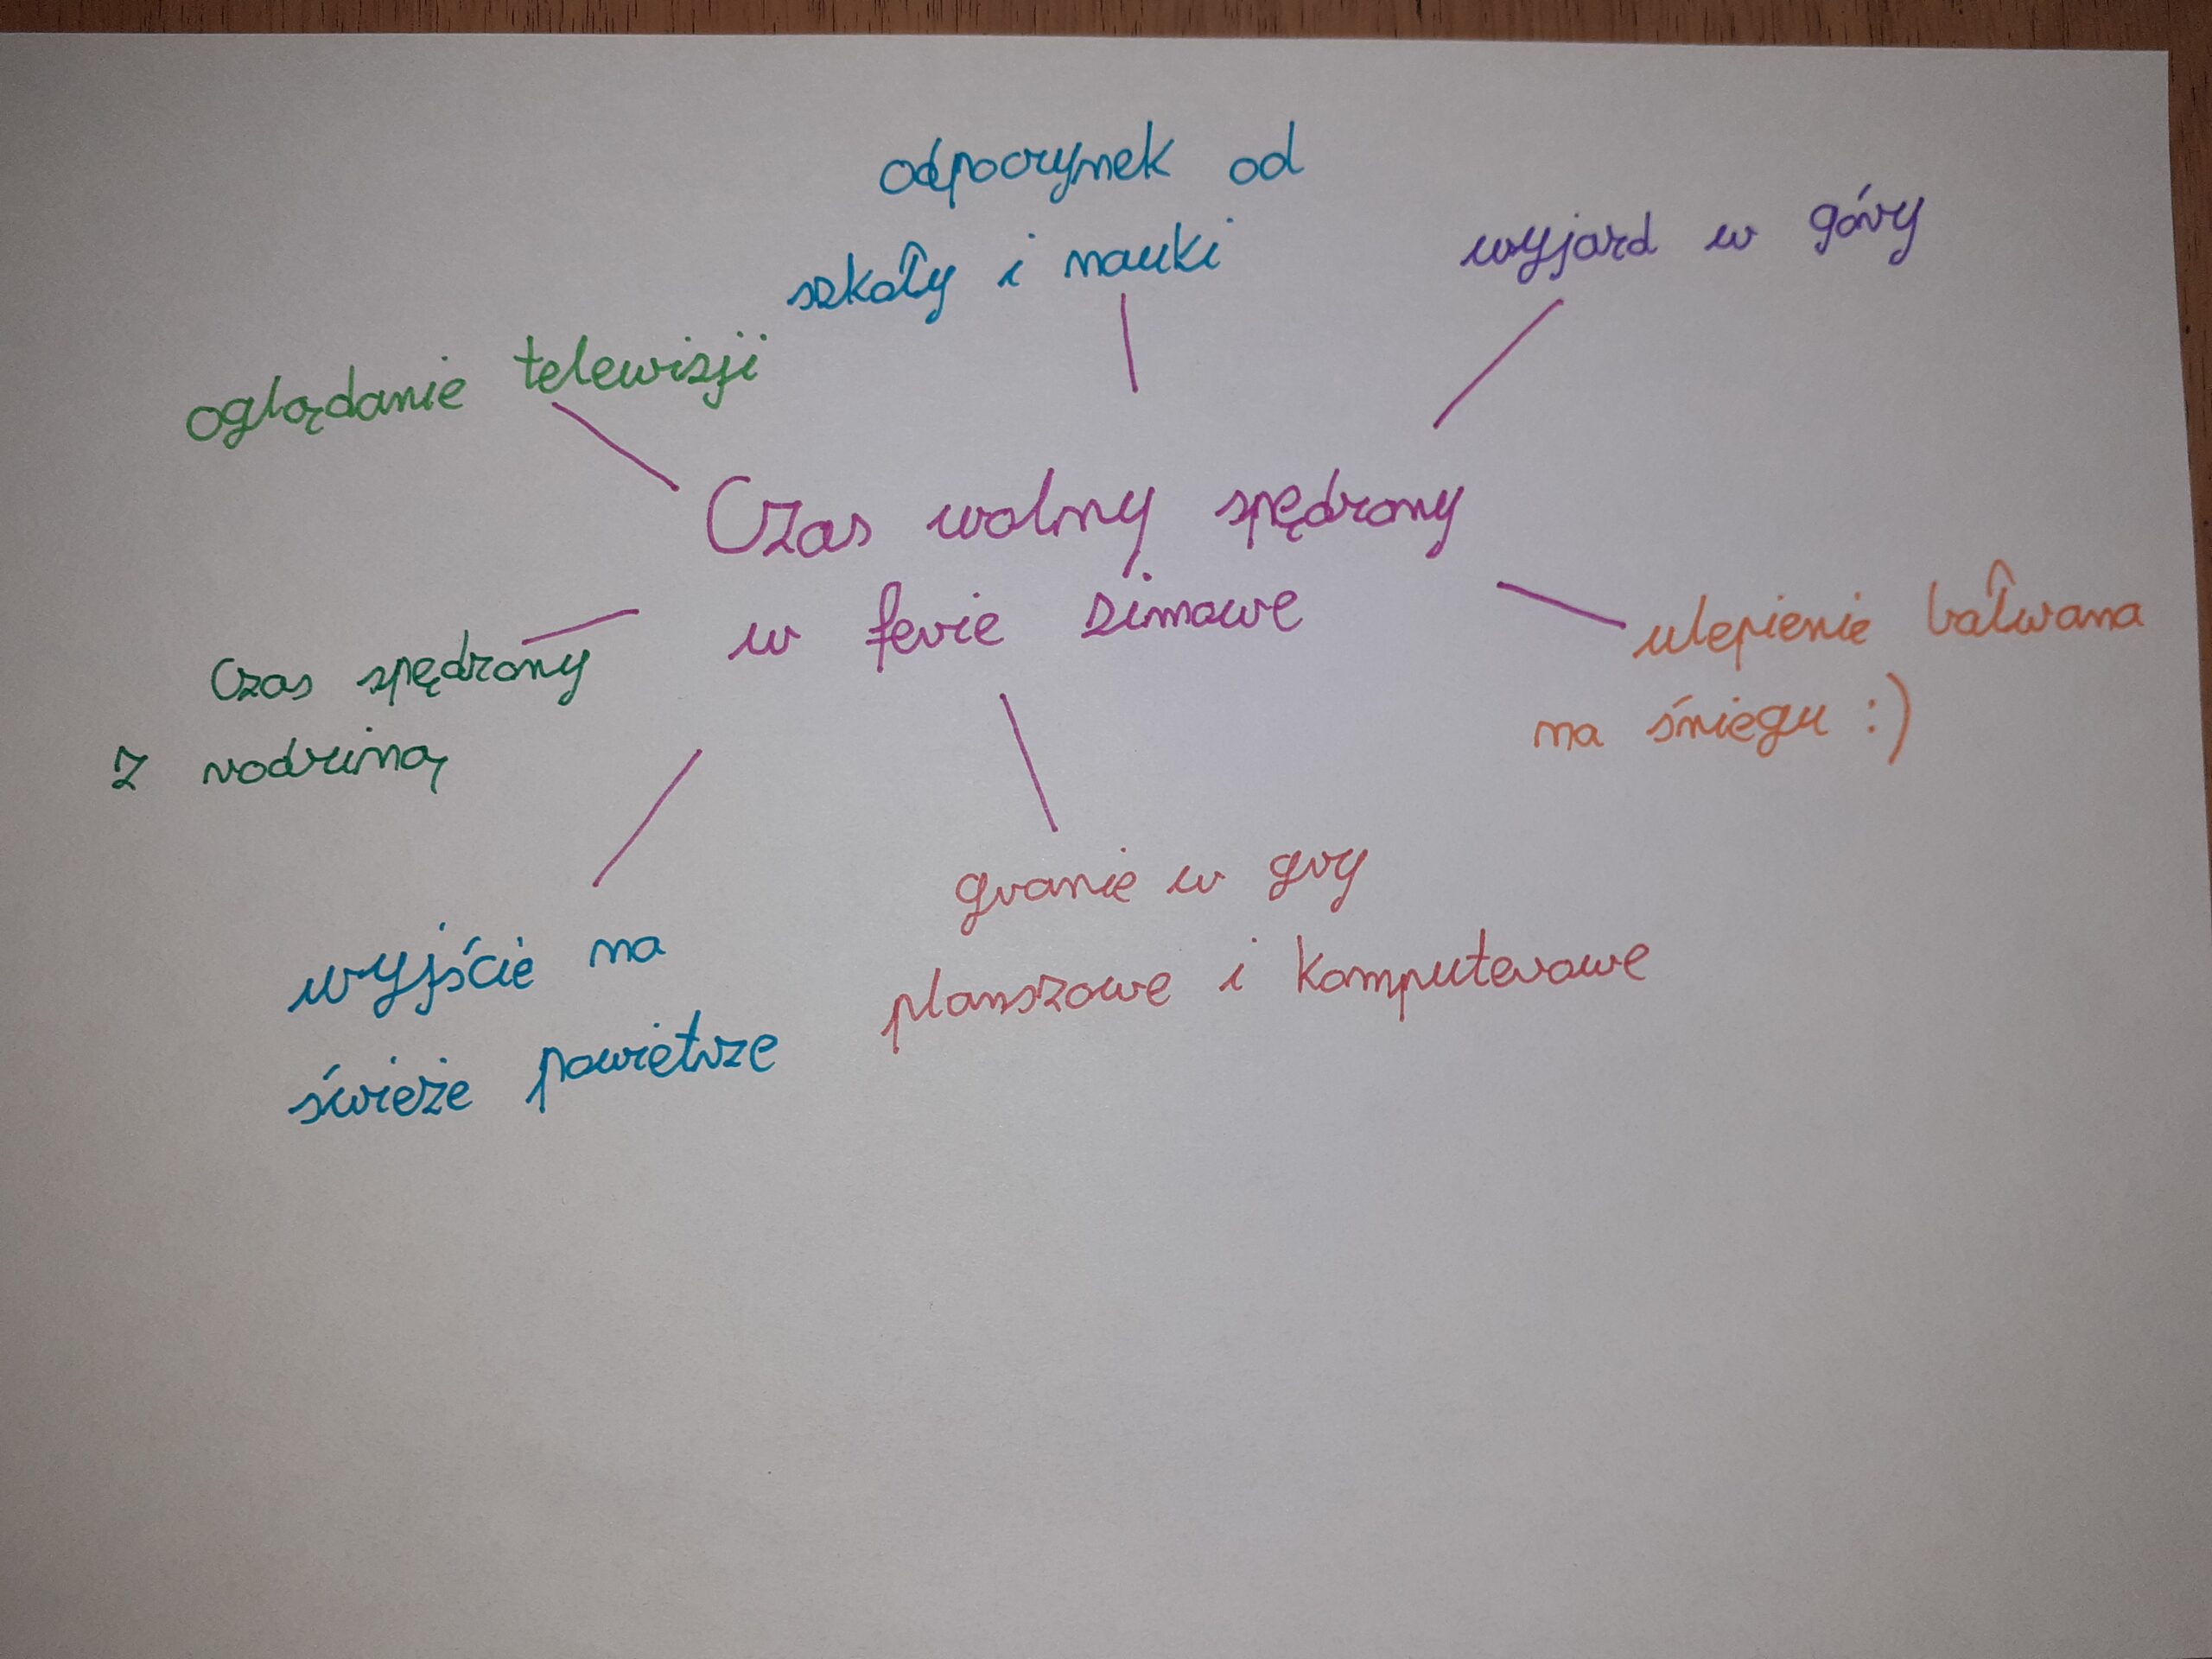 odpoczynek od
szkoły i nauki
wyjazd w góry
oglądanie telewizji
Czas wolny spędzony
w ferie zimowe
ulepienie bałwana
na śniegu :)
Czas spędzony
z rodziną
granie w gry
planszowe i komputerowe
wyjście na
świeże powietrze